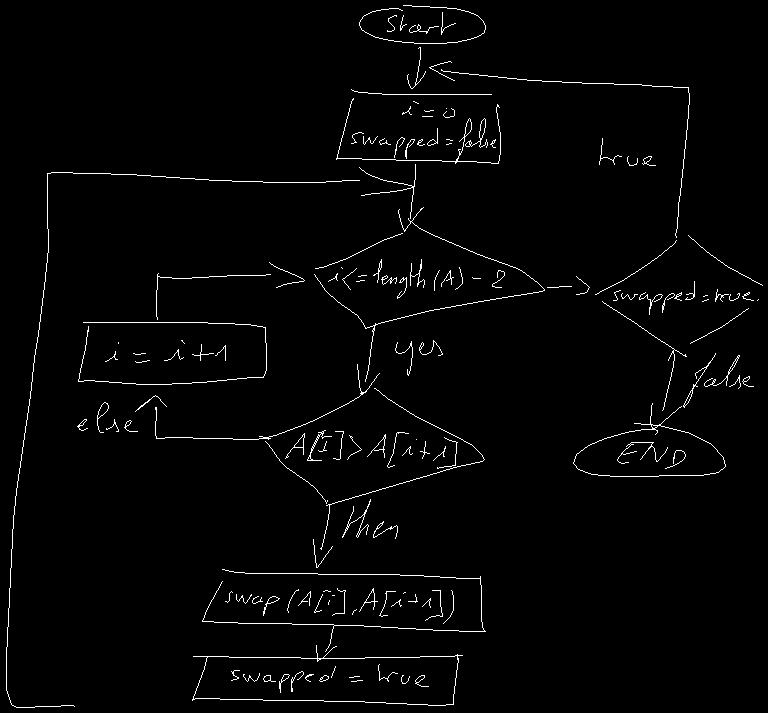 Start
i=0
swapped=false
true
i<=length(A)-2
swapped=true.
i=i+1
yes
false
else
A[I]>A[i+1]
END
then
swap(A[i],A[i+1])
swapped=true